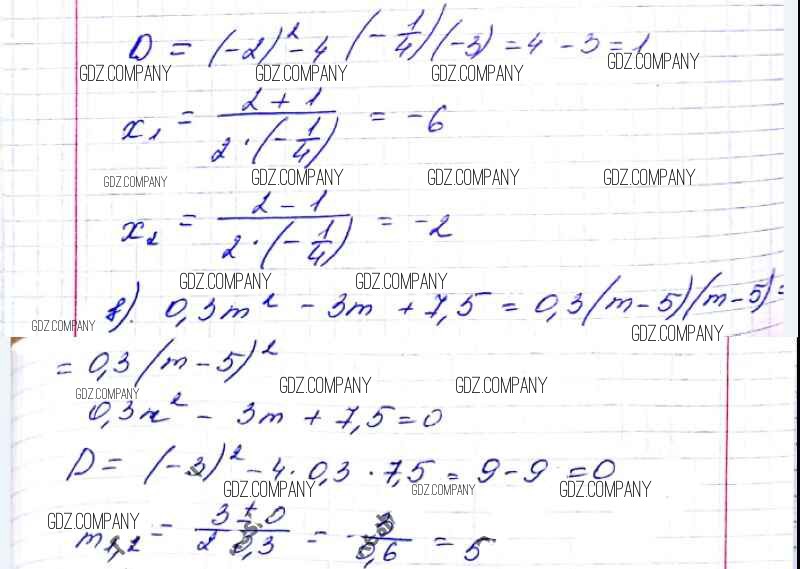 D = (-2)² - 4 (-1/4)(-3) = 4 - 3 = 1
GDZ.COMPANY GDZ.COMPANY GDZ.COMPANY GDZ.COMPANY
x₁ = (2 + 1)/(2 · (-1/4)) = -6
GDZ.COMPANY GDZ.COMPANY GDZ.COMPANY GDZ.COMPANY
x₂ = (2 - 1)/(2 · (-1/4)) = -2
GDZ.COMPANY GDZ.COMPANY
в). 0,3m² - 3m + 7,5 = 0,3(m-5)(m-5) =
GDZ.COMPANY GDZ.COMPANY
= 0,3(m-5)²
GDZ.COMPANY GDZ.COMPANY GDZ.COMPANY
0,3x² - 3m + 7,5 = 0
D = (-3)² - 4 · 0,3 · 7,5 = 9 - 9 = 0
GDZ.COMPANY GDZ.COMPANY GDZ.COMPANY
GDZ.COMPANY
m₁,₂ = (3 ± 0)/(2 0,3) = 3/0,6 = 5